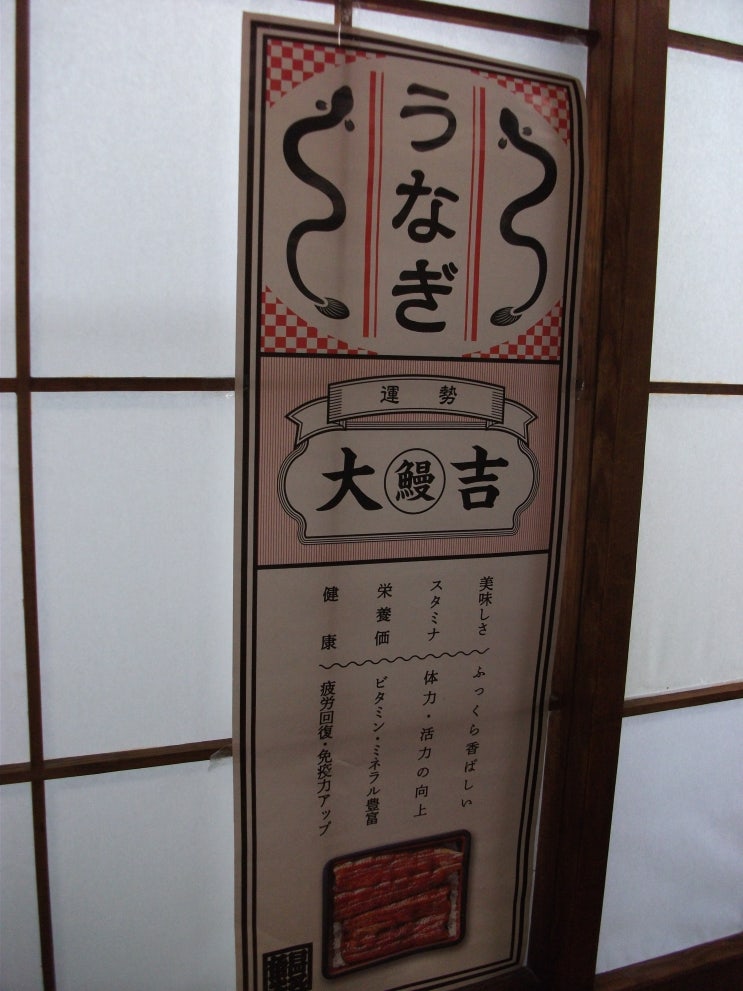 うなぎ
運勢
大鰻吉
美味しさ ふっくら香ばしい
スタミナ 体力・活力の向上
栄養価 ビタミン・ミネラル豊富
健康 疲労回復・免疫力アップ